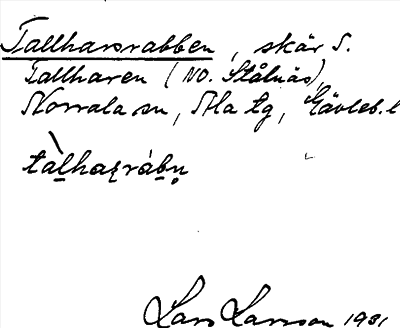 Tallharsrabben, skär S.
Tallharen (NO. Stålnäs),
Norrala sn, Ala tg, Gävleb. l
tàlhaʂrábn̥
Lars Larsson 1931